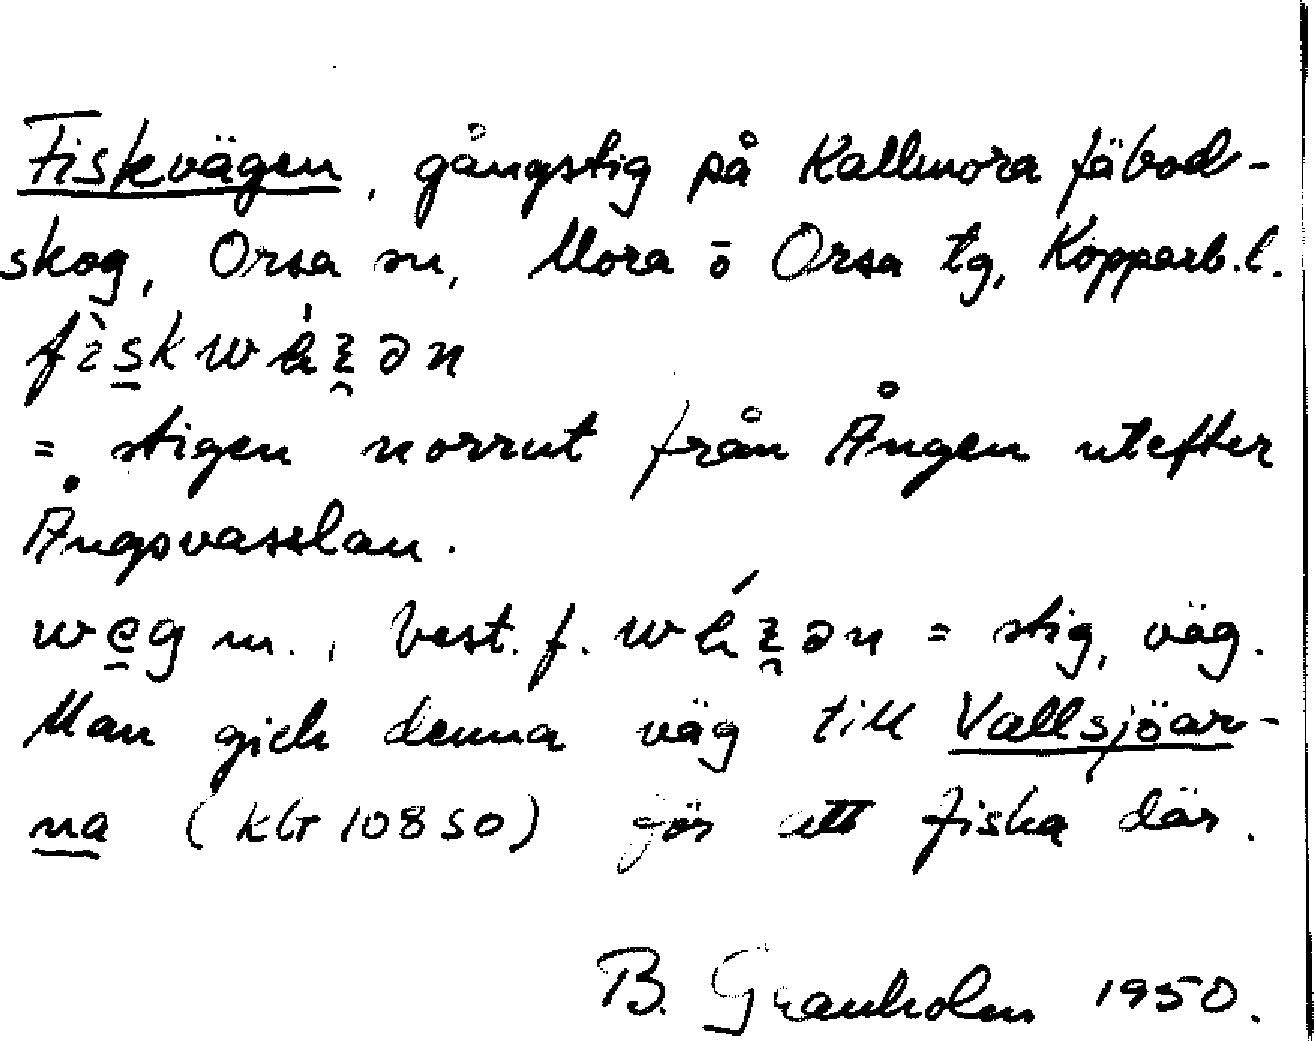 Fiskvägen, gångstig på Kallmora fäbod-
skog, Orsa sn, Mora o Orsa tg, Kopparb.l.
= stigen norrut från Ången utefter
Ångsvasslan.
m., best. f. = stig, väg.
Man gick denna väg till Vallsjöar-
na (kbr 10850) för att fiska där.
B. Granholm 1950.